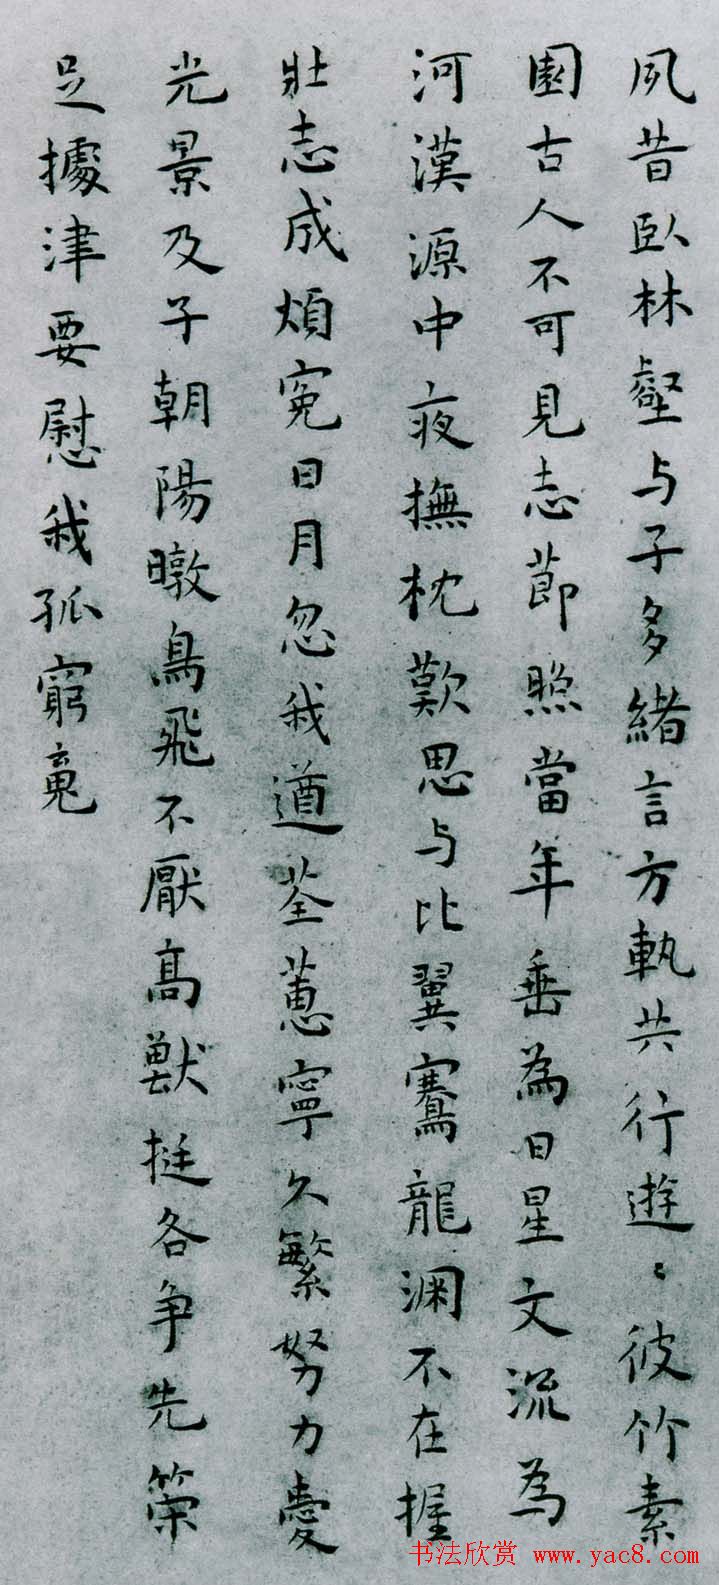 夙昔臥林壑与子多緒言方執共行遊〻彼竹素
園古人不可見志節照當年垂為日星文流為
河漢源中夜撫枕歎思与比翼騫龍渊不在握
壯志成煩冤日月忽我遒荃蕙寧久繁努力愛
光景及子朝陽暾鳥飛不厭高獸挺各争先策
足據津要慰我孤窮䰟
书法欣赏 www.yac8.com